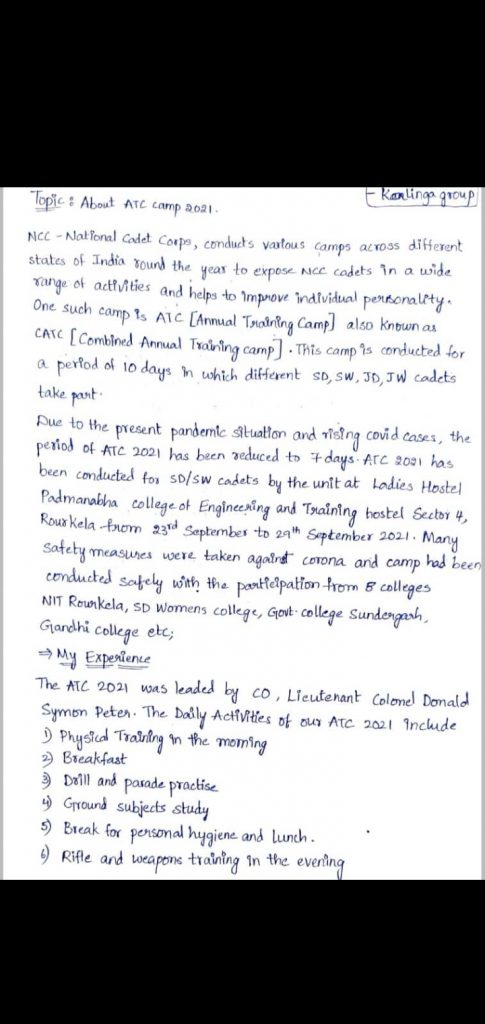 Topic : About ATC camp 2021.
- Kanlinga group
NCC - National Cadet Corps, conducts various camps across different
states of India round the year to expose NCC cadets in a wide
range of activities and helps to improve individual personality.
One such camp is ATC [Annual Training Camp] also known as
CATC [Combined Annual Training camp]. This camp is conducted for
a period of 10 days in which different SD, SW, JD, JW cadets
take part.
Due to the present pandemic situation and rising covid cases, the
period of ATC 2021 has been reduced to 7 days. ATC 2021 has
been conducted for SD/SW cadets by the unit at Ladies Hostel
Padmanabha college of Engineering and Training hostel Sector 4,
Rourkela from 23rd September to 29th September 2021. Many
safety measures were taken against corona and camp had been
conducted safely with the participation from 8 colleges
NIT Rourkela, SD Womens college, Govt. college Sundergarh,
Gandhi college etc;
⇒ My Experience
The ATC 2021 was leaded by CO, Lieutenant Colonel Donald
Symon Peter. The Daily Activities of our ATC 2021 include
1) Physical Training in the morning
2) Breakfast
3) Drill and parade practise
4) Ground subjects study
5) Break for personal hygiene and Lunch.
6) Rifle and weapons training in the evening